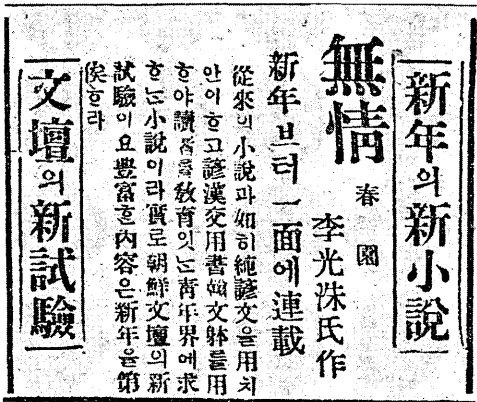 新年의新小說
春園 李光洙氏作
無情
新年브터一面에連載
從來의小說과如히純諺文을用치
안이ᄒᆞ고諺漢交用書翰文軆를用
ᄒᆞ야讀者를敎育잇ᄂᆞᆫ靑年界에求
ᄒᆞᄂᆞᆫ小說이라實로朝鮮文壇의新
試驗이요豊富ᄒᆞᆫ內容은新年을第
俟ᄒᆞ라
文壇의新試驗